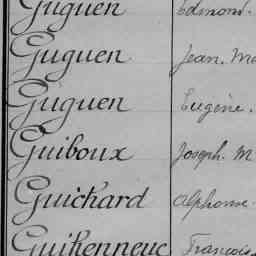 Guguen Edmond.
Guguen Jean. Ma
Guguen Eugène.
Guiboux Joseph. M
Guichard Alphonse
Guihenneuc François